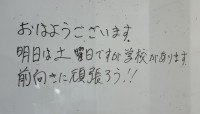 おはようございます.
明日は土曜日ですが学校があります
前向きに頑張ろう!!